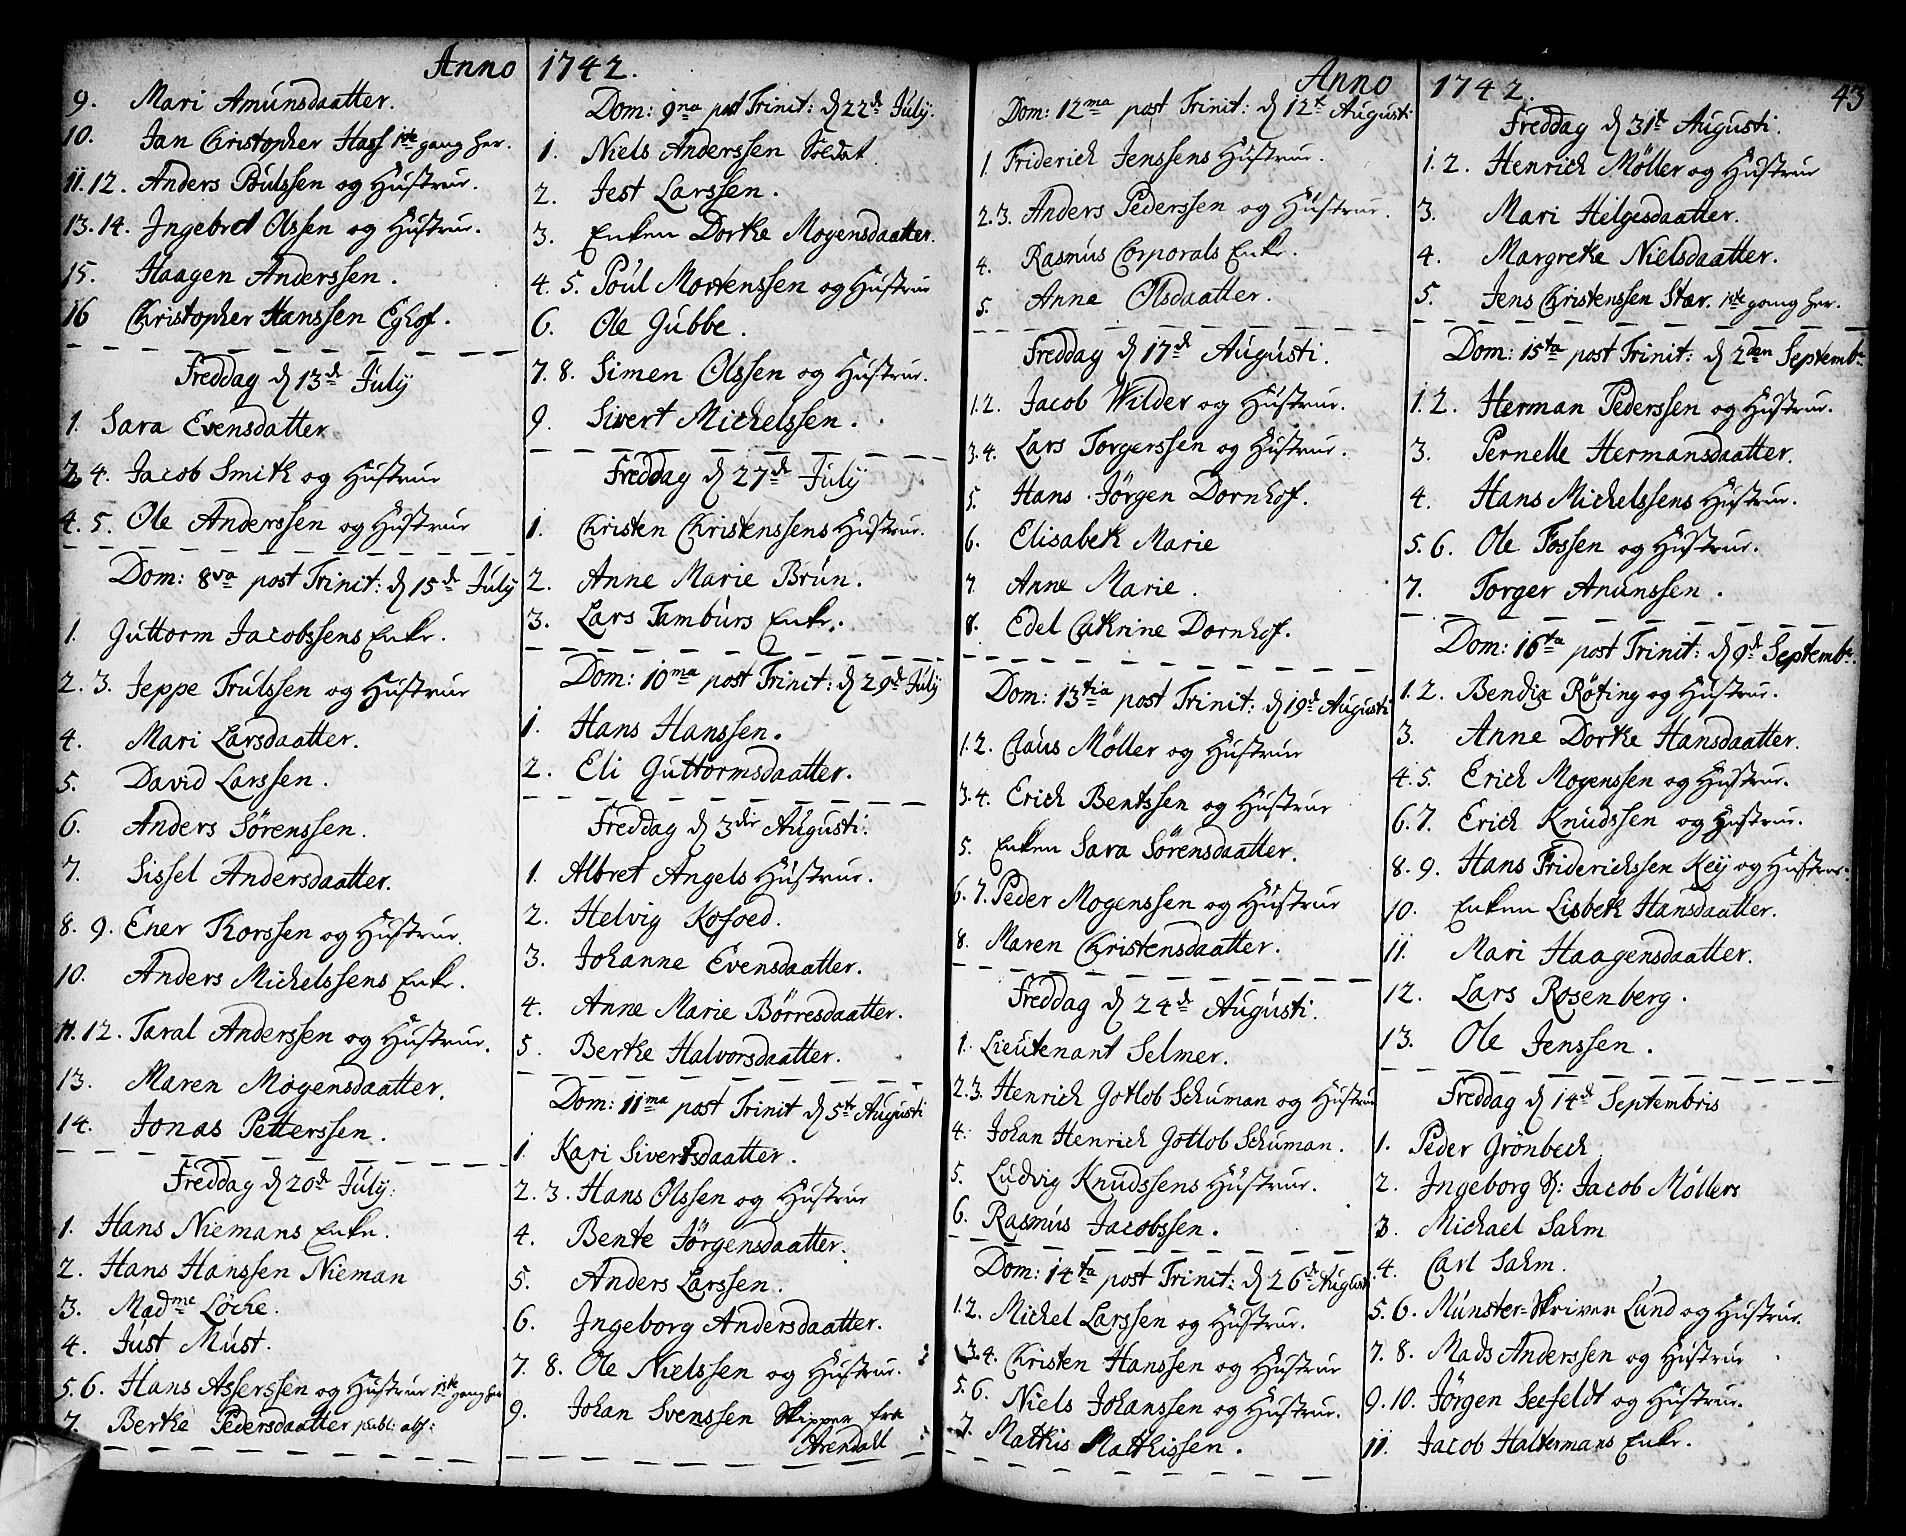 Anno 1742.
9. Mari Amunsdaatter.
10. Jan Christopher Hass 1ste gang her.
11. 12. Anders Poulssen og Hustrue.
13. 14. Ingebret Olssen og Hustrue.
15. Haagen Anderssen.
16 Christopher Hanssen Eghof.
Freddag d 13de July
1. Sara Evensdatter
3. 4. Jacob Smith og Hustrue
4. 5. Ole Anderssen og Hustrue
Dom: 8va post Trinit: d 15de July
1. Guttorm Jacobssens Enke.
2. 3. Jeppe Trulssen og Hustrue
4. Mari Larsdaatter.
5. David Larssen.
6. Anders Sörenssen.
7. Sissel Andersdaatter.
8. 9. Ener Thorssen og Hustrue.
10. Anders Michelssens Enke.
11. 12. Taral Anderssen og Hustrue.
13. Maren Mogensdaatter.
14. Jonas Petterssen.
Freddag d 20de July.
1. Hans Niemans Enke.
2. Hans Hanssen Nieman
3. Madme Löche.
4. Just Must.
5. 6. Hans Asserssen og Hustrue 1ste gang her
7. Berthe Pedersdaatter publ: abs:
Dom: 9na post Trinit: d 22de July.
1. Niels Anderssen Soldat
2. Jest Larssen.
3. Enken Dorthe Mogensdaatter.
4. 5. Poul Mortenssen og Hustrue
6. Ole Gubbe.
7. 8. Simen Olssen og Hustrue.
9. Sivert Michelssen.
Freddag d 27de July
1. Christen Christenssens Hustrue.
2. Anne Marie Brun.
3. Lars Tamburs Enke.
Dom: 10ma post Trinit: d 29de July
1. Hans Hanssen.
2. Eli Guttormsdaatter.
Freddag d 3die Augusti.
1. Albret Angels Hustrue.
2. Helvig Kofoed.
3. Johanne Evensdaatter.
4. Anne Marie Börresdaatter.
5. Berthe Halvorsdaatter.
Dom: 11ma post Trinit d 5te Augusti
1. Kari Sivertsdaatter.
2. 3. Hans Olssen og Hustrue
4. Bente Jörgensdaatter.
5. Anders Larssen.
6. Ingeborg Andersdaatter.
7. 8. Ole Nielssen og Hustrue.
9. Johan Svenssen Skipper fra
Arendall
Anno 1742. 43
Dom: 12ma post Trinit: d 12te Augusti
1. Friderich Jenssens Hustrue.
2. 3. Anders Pederssen og Hustrue.
4. Rasmus Corporals Enke.
5. Anne Olsdaatter.
Freddag d 17de Augusti.
1. 2. Jacob Wilder og Hustrue.
3. 4. Lars Torgerssen og Hustrue.
5. Hans Jörgen Dornhof.
6. Elisabeth Marie
7. Anne Marie.
8. Edel Cathrine Dornhof.
Dom: 13tia post Trinit: d 19de Augusti
1. 2. Claus Möller og Hustrue
3. 4. Erich Bentssen og Hustrue
5. Enken Sara Sörensdaatter.
6. 7. Peder Mogenssen og Hustrue
8. Maren Christensdaatter.
Freddag d 24de Augusti.
1. Lieutenant Selmer.
2. 3. Henrich Gotlob Schuman og Hustrue
4. Johan Henrich Gotlob Schuman.
5. Ludvig Knudssens Hustrue.
6. Rasmus Jacobssen.
Dom: 14ta post Trinit: d 26de Augusti.
1. 2. Michel Larssen og Hustrue.
3. 4. Christen Hanssen og Hustrue
5. 6. Niels Johanssen og Hustrue.
7. Mathis Mathissen.
Freddag d 31te Augusti.
1. 2. Henrich Möller og Hustrue
3. Mari Helgesdaatter.
4. Margrethe Nielsdaatter.
5. Jens Christenssen Stær. 1ste gang her.
Dom: 15ta post Trinit: d 2den Septembr.
1. 2. Herman Pederssen og Hustrue.
3. Pernelle Hermansdaatter.
4. Hans Michelssens Hustrue.
5. 6. Ole Fossen og Hustrue.
7. Torger Anunssen.
Dom: 16ta post Trinit: d 9de Septembr.
1. 2. Bendix Röting og Hustrue.
3. Anne Dorthe Hansdaatter.
4. 5. Erich Mogenssen og Hustrue.
6. 7. Erich Knudssen og Hustrue.
8. 9. Hans Friderichssen Keij og Hustrue.
10. Enken Lisbeth Hansdaatter.
11. Mari Haagensdaatter.
12. Lars Rosenberg.
13. Ole Jenssen.
Freddag d 14de Septembris
1. Peder Grönbech
2. Ingeborg S: Jacob Möllers
3. Michael Sahm
4. Carl Sahm.
5. 6. Münster=Skriver Lund og Hustrue.
7. 8. Mads Anderssen og Hustrue
9. 10. Jörgen Seefeldt og Hustrue.
11. Jacob Haltermans Enke.